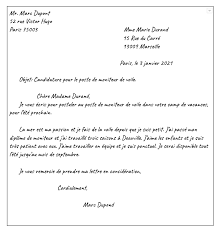 Mr. Marc Dupont
52 rue Victor Hugo
Paris 75003
Mme Marie Durand
15 Rue du Carré
13009 Marseille
Paris, le 3 janvier 2021
Objet: Candidature pour le poste de moniteur de voile.
Chère Madame Durand,
Je vous écris pour postuler au poste de moniteur de voile dans votre camp de vacances,
pour l'été prochain.
La mer est ma passion et je fais de la voile depuis que je suis petit. J'ai passé mon
diplôme de moniteur et j'ai travaillé trois saisons à Deauville. J'aime les enfants et je suis
très patient avec eux. J'aime travailler en équipe et je suis ponctuel. Je serai disponible tout
l'été jusqu'au mois de septembre.
Je vous remercie de prendre ma lettre en considération,
Cordialement,
Marc Dupond